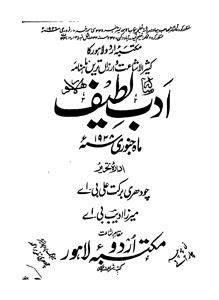 مکتبہ اردو لاہور کا
کثیر الاشاعت ارزاں ترین ماہنامہ
ادب لطیف
ماہ جنوری ۱۹۳۸ء
ادارۂ تحریر
چودھری برکت علی بی۔اے
میرزا ادیب بی۔اے
مقام اشاعت
مکتبہ اردو لاہور